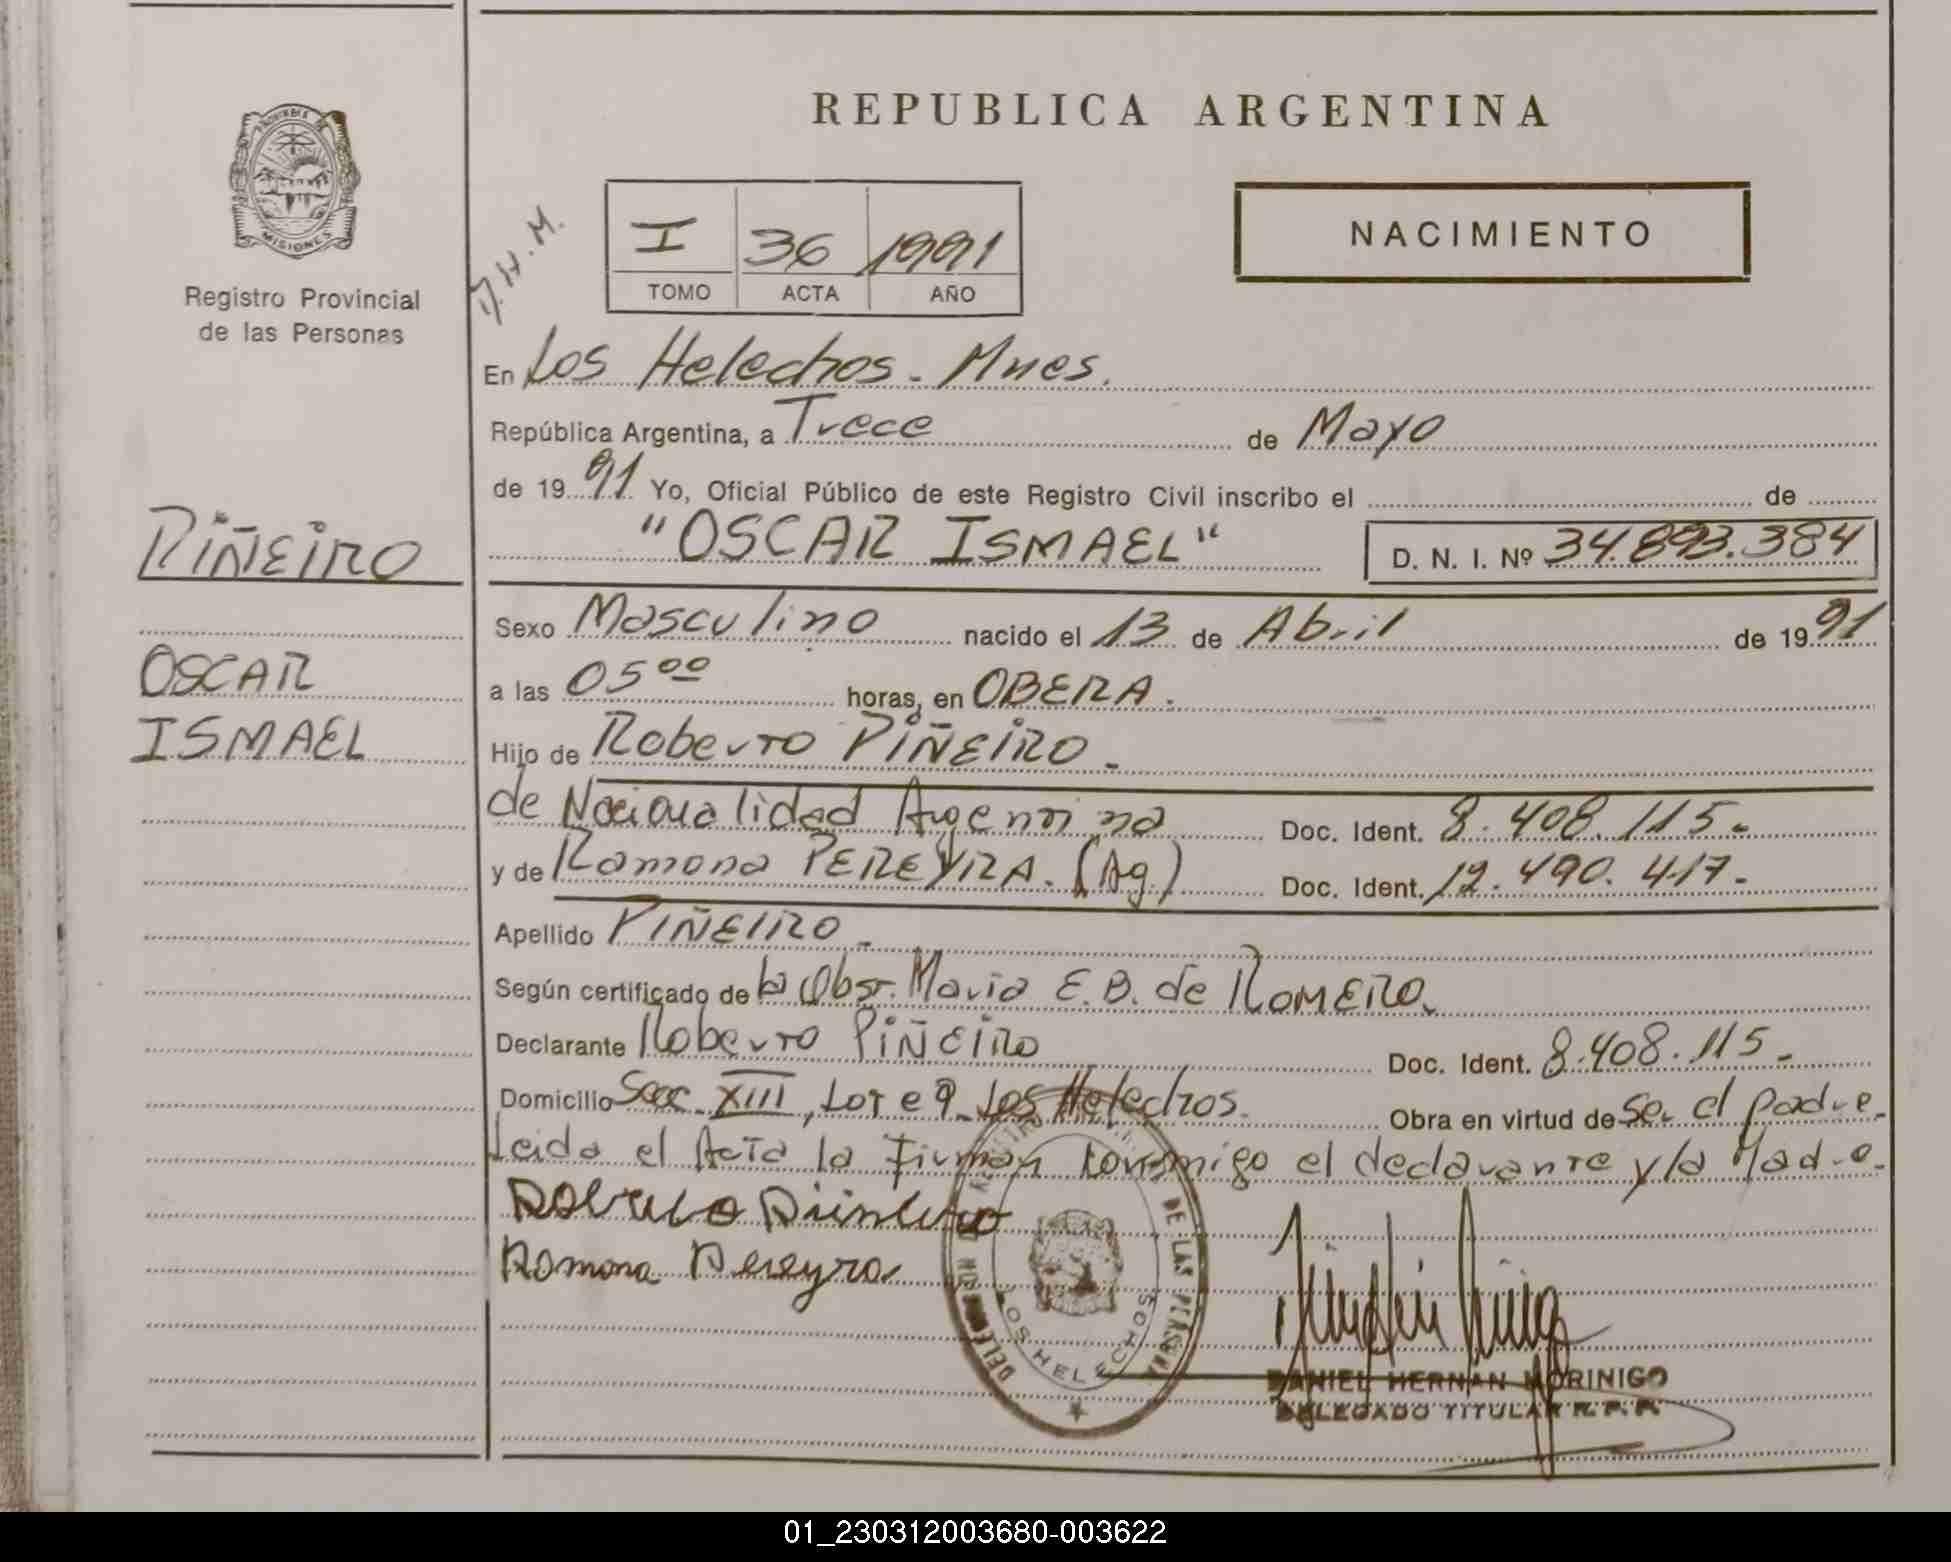 REPUBLICA ARGENTINA
PROVINCIA DE
MISIONES
Registro Provincial
de las Personas
J.H.M.
I 36 1991
TOMO ACTA AÑO
NACIMIENTO
En Los Helechos - Mnes.
República Argentina, a Trece de Mayo
de 1991 Yo, Oficial Público de este Registro Civil inscribo el de
"OSCAR ISMAEL" D. N. I. Nº 34.893.384
PIÑEIRO
OSCAR
ISMAEL
Sexo Masculino nacido el 13 de Abril de 1991
a las 05 00 horas, en OBERA.
Hijo de Roberto PIÑEIRO -
de Nacionalidad Argentina Doc. Ident. 8.408.115-
y de Ramona PEREYRA. (Ag.) Doc. Ident. 12.490.417-
Apellido PIÑEIRO -
Según certificado de la Obst. Maria E. B. de ROMERO.
Declarante Roberto PIÑEIRO Doc. Ident. 8.408.115-
Domicilio Secc. XIII, Lote 9 - Los Helechos. Obra en virtud de Ser el padre.
Leida el Acta la Firman conmigo el declarante y la Madre.
Roberto Piñeiro
Ramona Pereyra
DE LAS PERSONAS
LOS HELECHOS
DANIEL HERNAN MORINIGO
DELEGADO TITULAR R.P.P.
01_230312003680-003622